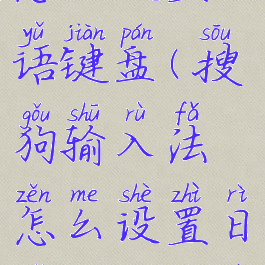 yǔ jiàn pán sōu
语键盘(搜
gǒu shū rù fǎ
狗输入法
zěn me shè zhì rì
怎么设置日